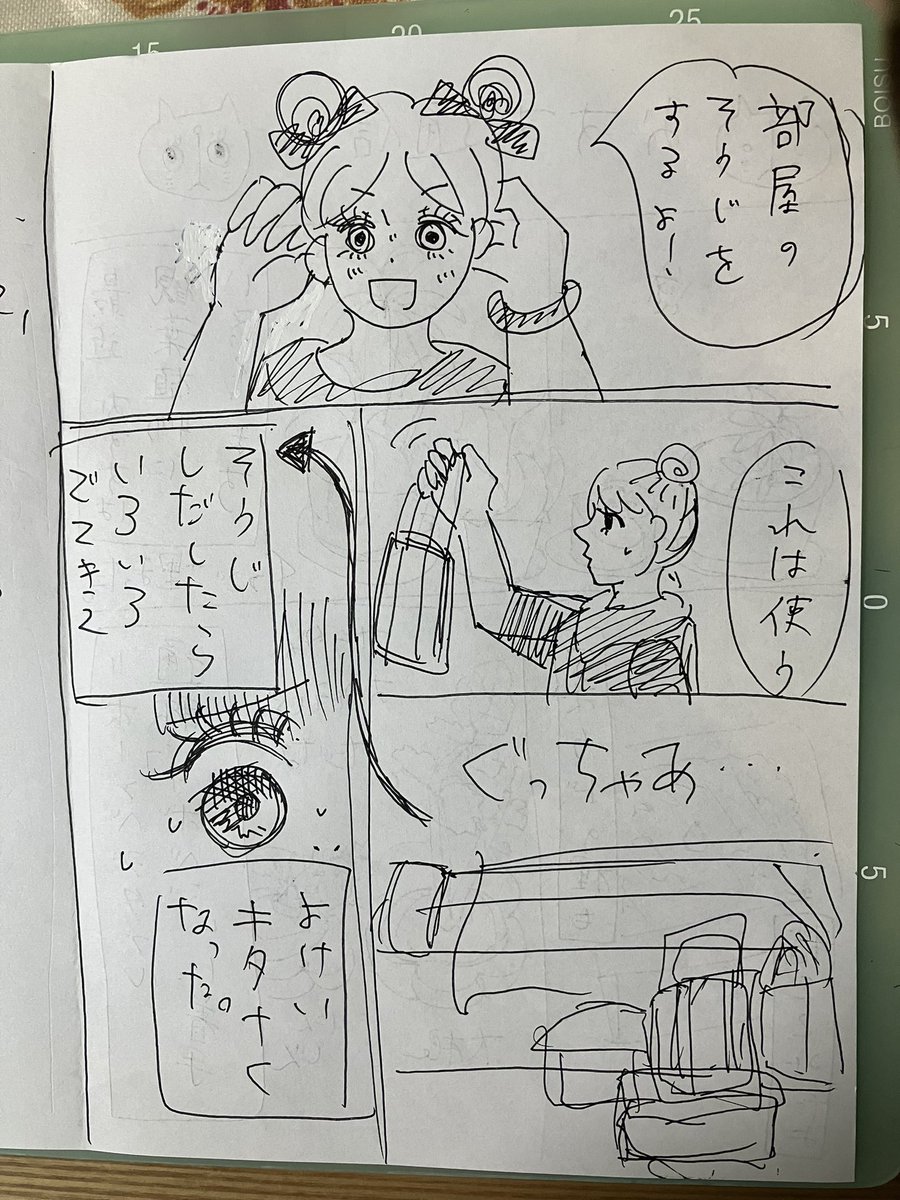 部屋の
そうじを
するよ!
これは使う
ぐっちゃあ…
そうじ
しだしたら
いろいろ
でてきて
よけい
キタナく
なった。
15
20
25
BOISU
5
0
5